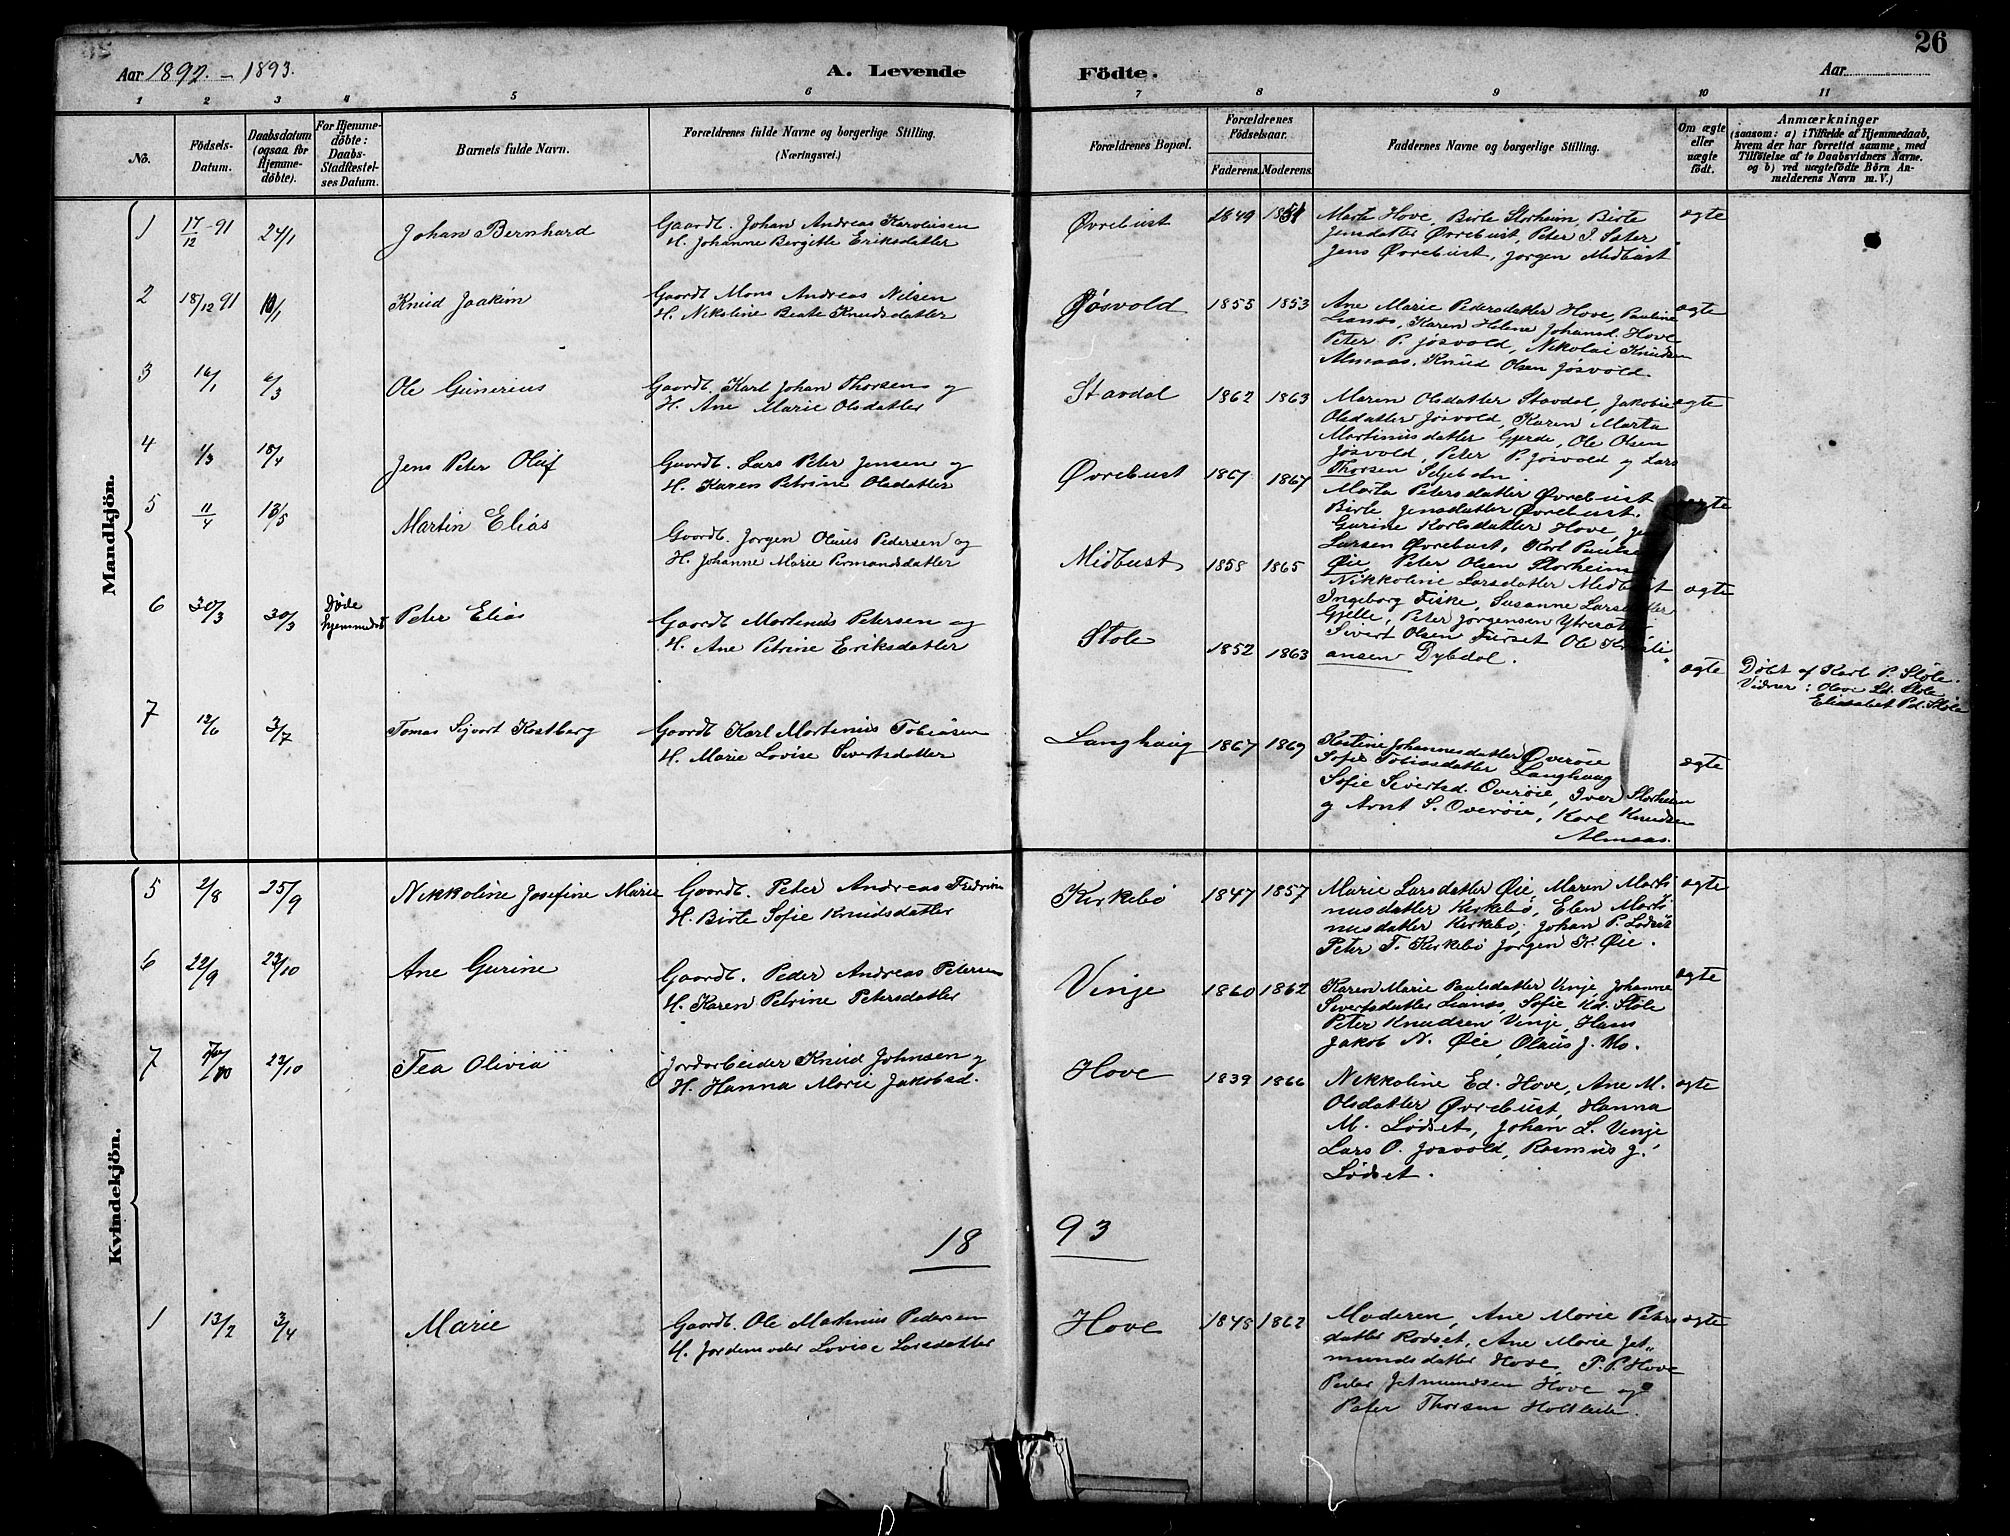 26
Aar 1892. - 1893.
A. Levende Födte.
Aar
1 2 3 4 5 6 7 8 9 10 11
No.
Födsels-
Datum.
Daabsdatum
(ogsaa for
Hjemme-
döbte).
For Hjemme-
döbte:
Daabs-
Stadfæstel-
ses Datum.
Barnets fulde Navn.
Forældrenes fulde Navne og borgerlige Stilling.
(Næringsvei.)
Forældrenes Bopæl.
Forældrenes
Födselsaar.
Faderens. Moderens.
Faddernes Navne og borgerlige Stilling.
Om ægte
eller
uægte
födt.
Anmærkninger
(saasom: a) i Tilfælde af Hjemmedaab,
hvem der har forrettet samme, med
Tilföielse af to Daabsvidners Navne.
og b) ved uægtefödte Börn An-
melderens Navn m. V.)
Mandkjön.
1 17/12-91 24/1 Johan Bernhard
Gaardb. Johan Andreas Karolusen
H. Johanne Birgitte Eriksdatter
Øvrebust 1849 1851
Marte Hove, Birte Storheim, Birte
Jensdatter Øvrebust, Peter J. Sæter
Jens Øvrebust, Jørgen Midbust
ægte
2 18/12 91 Knud Joakim
Gaardb Mons Andreas Nilsen
H. Nikoline Beate Knudsdatter
Jøsvold 1855 1853
Ane Marie Pedersdatter Hove, Pauline
Lianes, Karen Helene Johansd. Hove
Peter P. Jøsvold, Nikolai Knudsen
Almaas, Knud Olsen Jøsvold.
ægte
3 16/1 6/3 Ole Gunerius
Gaardb. Karl Johan Thorsen og
H. Ane Marie Olsdatter
Stavdal 1862 1863
Maren Olsdatter Stavdal, Jakobie
Olsdatter Jøsvold, Karen Marta
Martinusdatter Gjerde, Ole Olsen
Jøsvold, Peter P. Jøsvold og Lars
Thorsen
ægte
4 1/3 18/4 Jens Peter Oluf
Gaardb. Lars Peter Jensen og
H. Karen Petrine Olsdatter
Øvrebust 1867 1867
Marta Petersdatter Øvrebust
Birte Jensdatter Øvrebust,
Gurine Karlsdatter Hove,
Larsen Øvrebust, Karl
Øie, Peter Olsen Storheim
ægte
5 11/4 18/5 Martin Elias
Gaardb. Jørgen Olaus Pedersen og
H. Johanne Marie Permandsdatter
Midbust 1858 1865
Nikkoline Larsdatter Midbust
Ingeborg Fiske, Susanne
Gjelle, Peter Jørgensen
Sivert Olsen Furset Ole Kristi
ansen Dybdal.
ægte
6 30/3 30/3 Døde
hjemmedøbt
Peter Elias
Gaardb Martinus Petersen og
H. Ane Petrine Eriksdatter
Støle 1852 1863
ægte
Døbt af Karl P. Støle.
Vidner: Olave Ld. Støle
Eliasabet Pd. Støle
7 12/6 3/7 Tomas Sijvort Kostberg
Gaardb Karl Martinus Tobiasen
H. Marie Lovise Sivertsdatter
Langhaug 1867 1869
Kastine Johannesdatter Overøie
Sofie Tobiasdatter Langhaug
Sofie Sivertsd. Overøie, Iver Storheim
og Arnt S. Overøie, Karl Knudsen
Almaas.
ægte
Kvindekjön.
5 2/8 25/9 Nikkoline Josefine Marie
Gaardb. Peter Andreas
H. Birte Sofie Knudsdatter
Kirkebø 1847 1857
Marie Larsdatter Øie, Maren Marti
nusdatter Kirkebø, Elen Marti
nusdatter Kirkebø, Johan P. Lødset
Peter T. Kirkebø Jørgen K. Øie.
ægte
6 22/9 23/10 Ane Gurine
Gaardb. Peder Andreas Petersen
H. Karen Petrine Petersdatter
Vinje 1860 1862
Karen Marie Paulsdatter Vinje, Johanne
Sivertsdatter Lianes, Sofie Kd. Støle
Peter Knudsen Vinje, Hans
Jakob N. Øie, Olaus J. Mo.
ægte
7 23/10 Tea Olivia
Jordarbeider Knud Johnsen og
H. Hanna Marie Jakobsd.
Hove 1839 1866
Nikkoline Ed. Hove, Ane M.
Olsdatter Øvrebust, Hanna
M. Lødset, Johan L. Vinje
Lars O. Jøsvold, Rasmus J.
Lødset.
ægte
18 93
1 13/2 3/4 Marie
Gaardb. Ole Matinus Pedersen
H. Jordemoder Lovise Larsdatter
Hove 1848 1862
Moderen, Ane Marie Peters
datter Rødset, Ane Marie Jet„
mundsdatter Hove, P. P. Hove
Peder Jetmundsen Hove og
Peter Thorsen
ægte